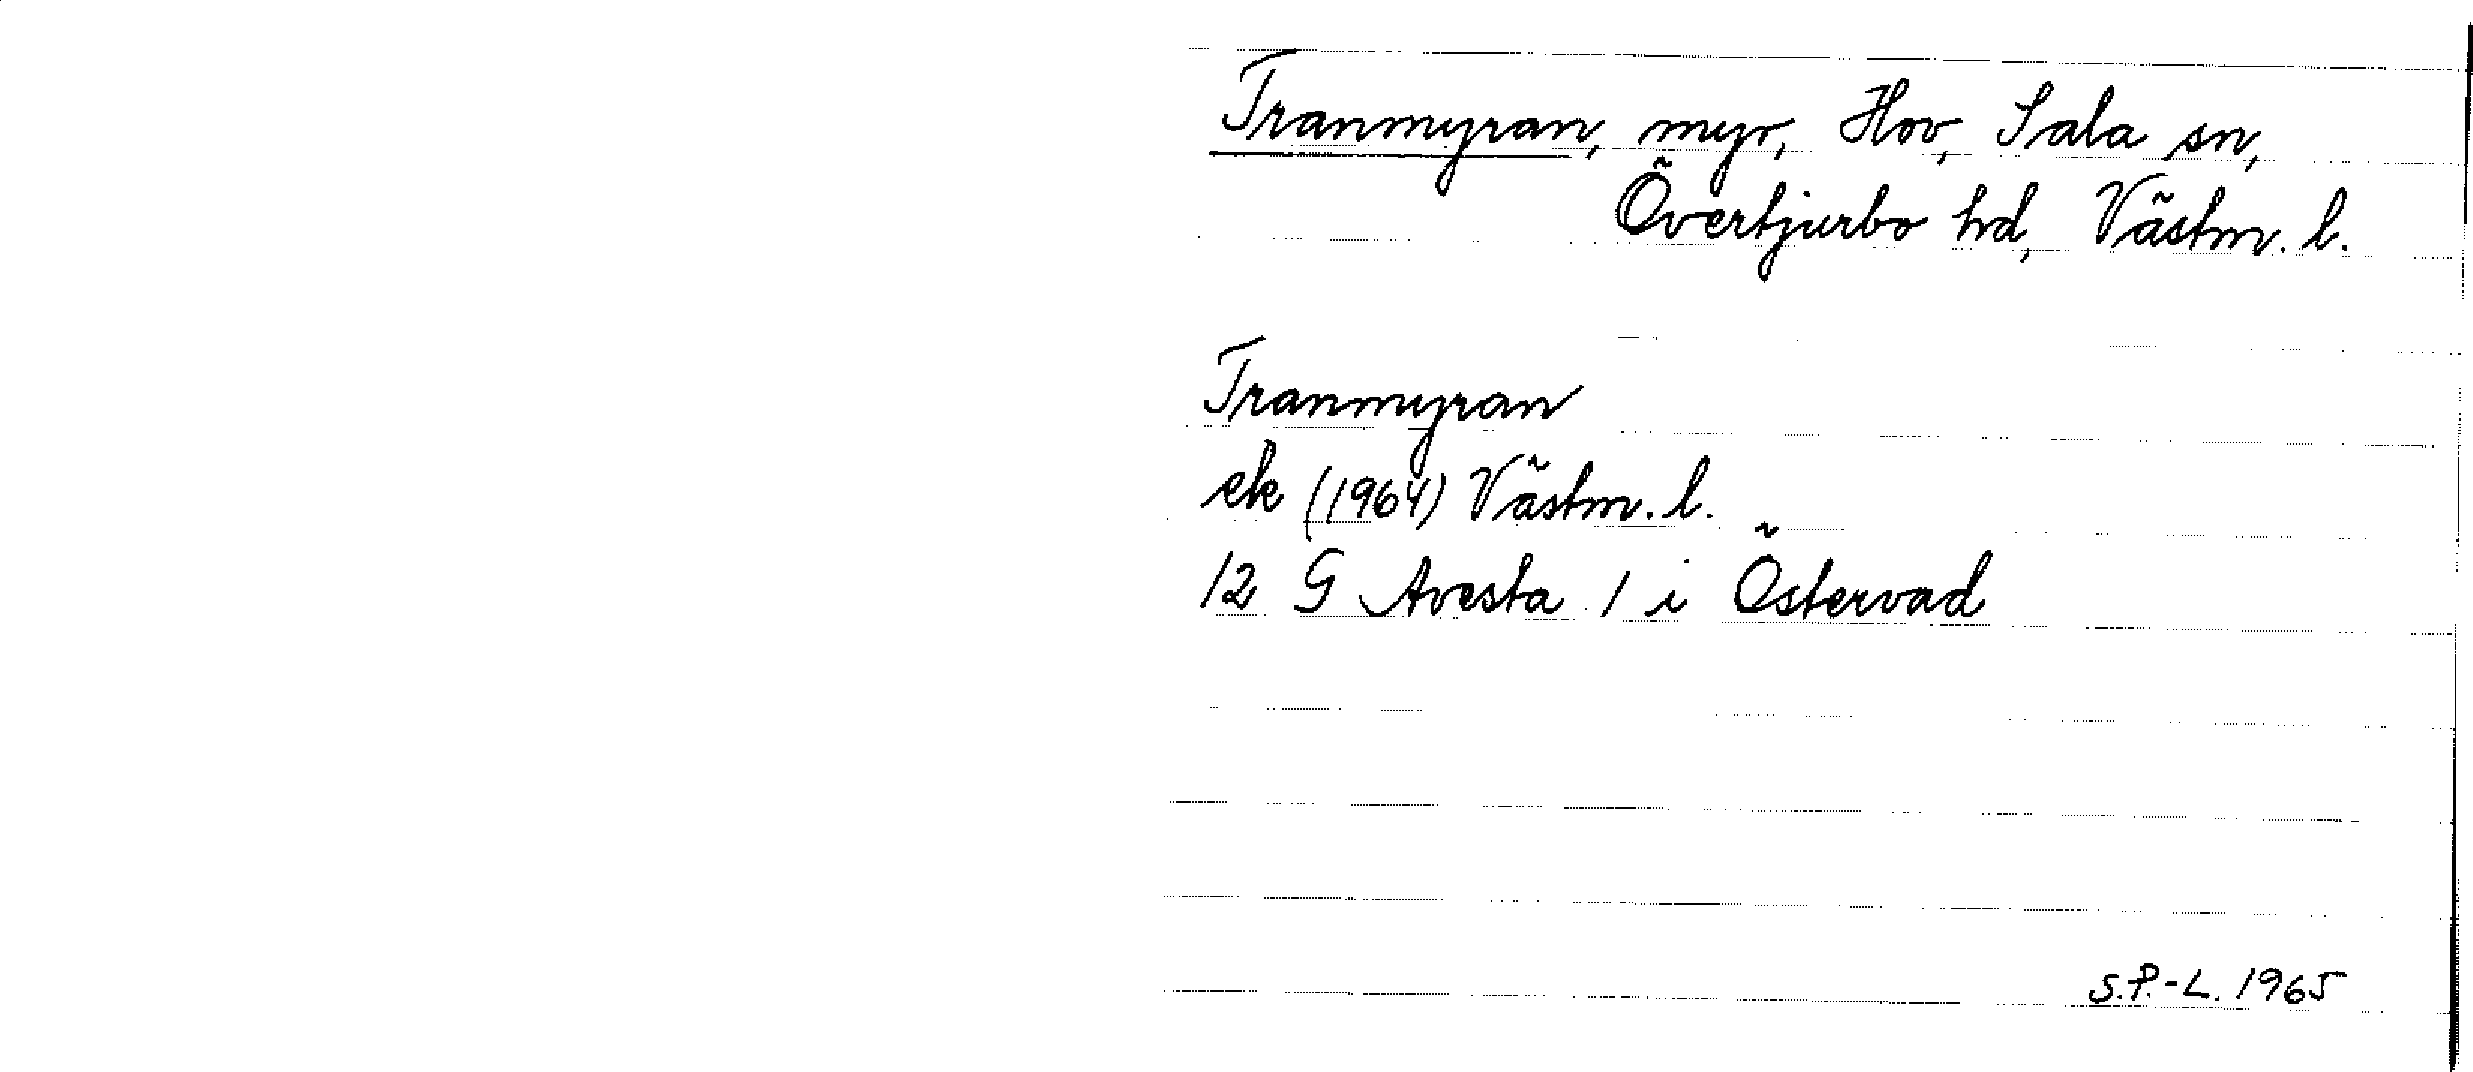 Tranmyran, myr, Hov, Sala sn,
Övertjurbo hd, Västm. l.
Tranmyran
ek (1964) Västm. l.
12 G Avesta 1 i Östervad
S.P.-L. 1965